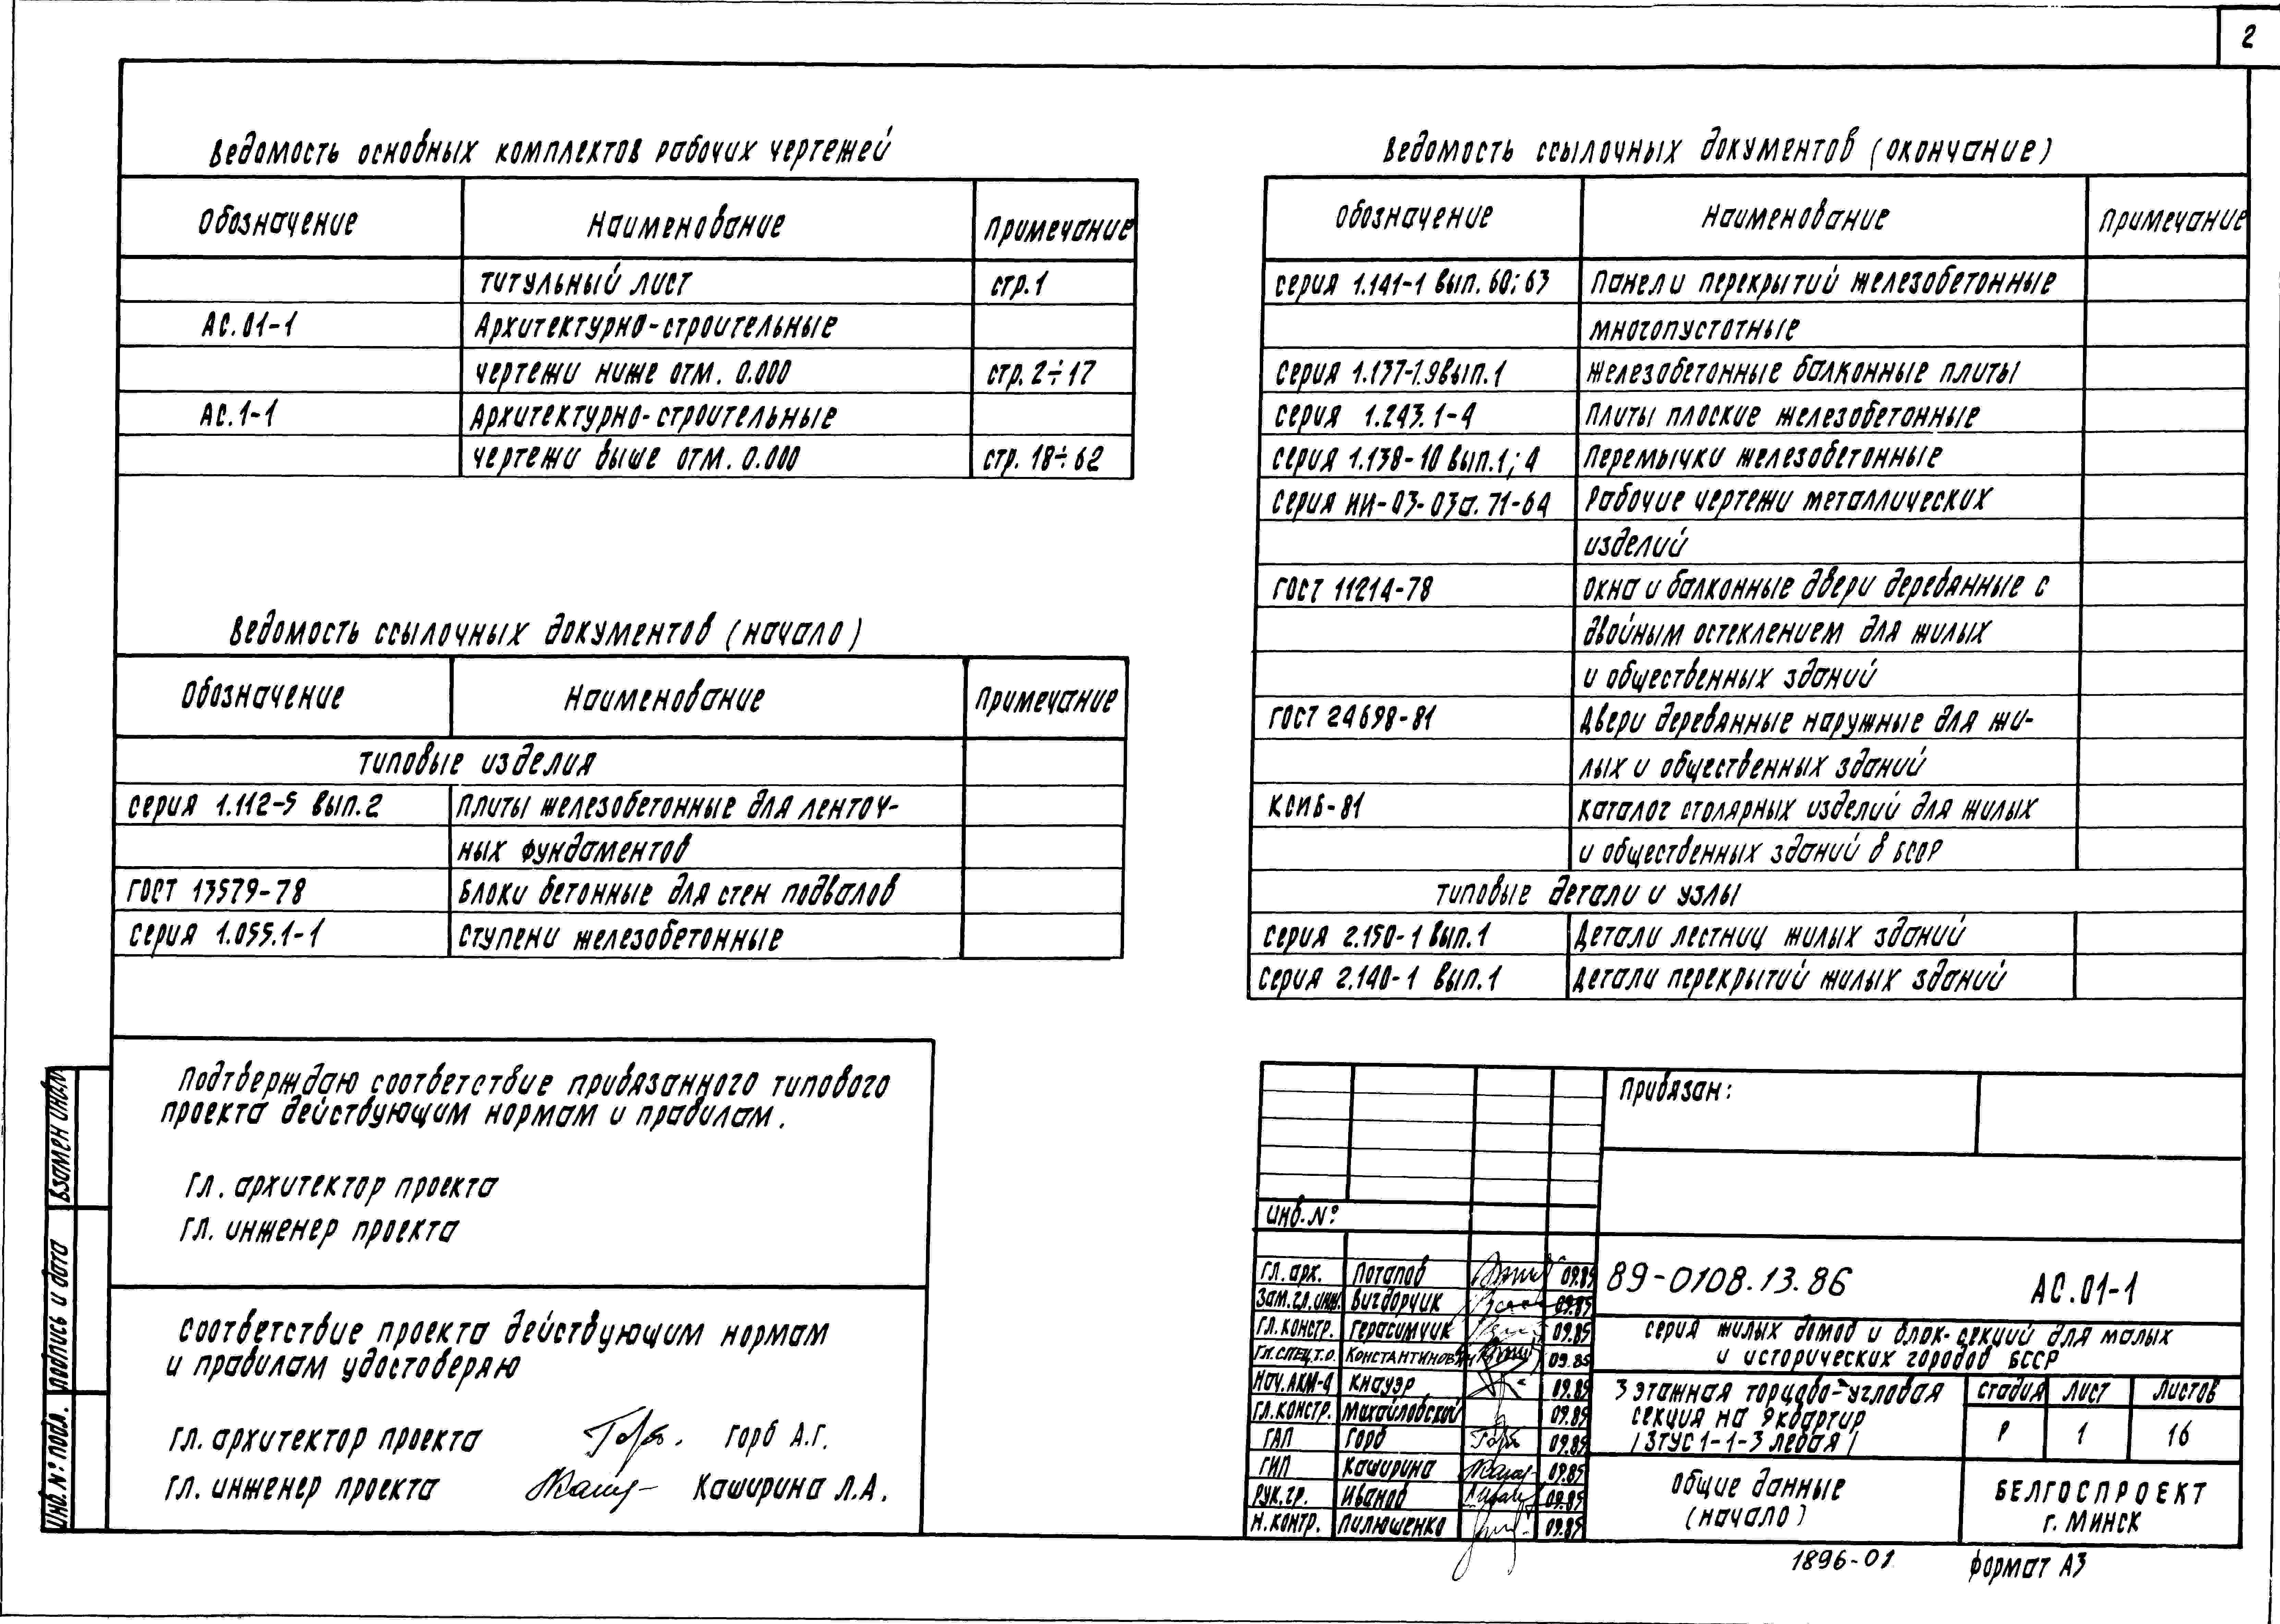 2
Ведомость основных комплектов рабочих чертежей
Обозначение Наименование Примечание
титульный лист стр.1
АС.01-1 Архитектурно-строительные
чертежи ниже отм. 0.000 стр. 2÷17
АС.1-1 Архитектурно-строительные
чертежи выше отм. 0.000 стр. 18÷62
Ведомость ссылочных документов (начало)
Обозначение Наименование Примечание
типовые изделия
серия 1.112-5 вып.2 плиты железобетонные для ленточ-
ных фундаментов
ГОСТ 13579-78 Блоки бетонные для стен подвалов
серия 1.055.1-1 ступени железобетонные
Ведомость ссылочных документов (окончание)
Обозначение Наименование Примечание
серия 1.141-1 вып. 60; 63 Панели перекрытий железобетонные
многопустотные
Серия 1.137-1.9 вып.1 железобетонные балконные плиты
серия 1.243.1-4 плиты плоские железобетонные
серия 1.138-10 вып.1; 4 Перемычки железобетонные
серия ИИ-03-03а. 71-64 Рабочие чертежи металлических
изделий
ГОСТ 11214-78 окна и балконные двери деревянные с
двойным остеклением для жилых
и общественных зданий
ГОСТ 24698-81 двери деревянные наружные для жи-
лых и общественных зданий
КСИБ-81 каталог столярных изделий для жилых
и общественных зданий в БССР
типовые детали и узлы
серия 2.150-1 вып.1 Детали лестниц жилых зданий
серия 2.140-1 вып.1 детали перекрытий жилых зданий
Подтверждаю соответствие привязанного типового
проекта действующим нормам и правилам.
гл. архитектор проекта
гл. инженер проекта
соответствие проекта действующим нормам
и правилам удостоверяю
гл. архитектор проекта Горб А.Г.
гл. инженер проекта Каширина Л.А.
Взамен инв.№
подпись и дата
инв. № подл.
Привязан:
инв. №
гл. арх. Потапов 09.85
Зам. гл. инж. Вигдорчик 09.85
гл. констр. герасимчик 09.85
Гл. спец. т.о. Константинович 09.85
Нач. АКМ-4 Кнауэр 09.85
гл. констр. Михайловский 09.85
ГАП Горб 09.85
ГИП Каширина 09.85
рук. гр. Иванов 09.85
Н. контр. Пилюшенко 09.85
89-0108.13.86 АС.01-1
серия жилых домов и блок-секций для малых
и исторических городов БССР
3 этажная торцово-угловая
секция на 9 квартир
/ 3ТУС 1-1-3 левая /
стадия лист листов
Р 1 16
общие данные
(начало)
БЕЛГОСПРОЕКТ
г. МИНСК
1896-01 формат А3